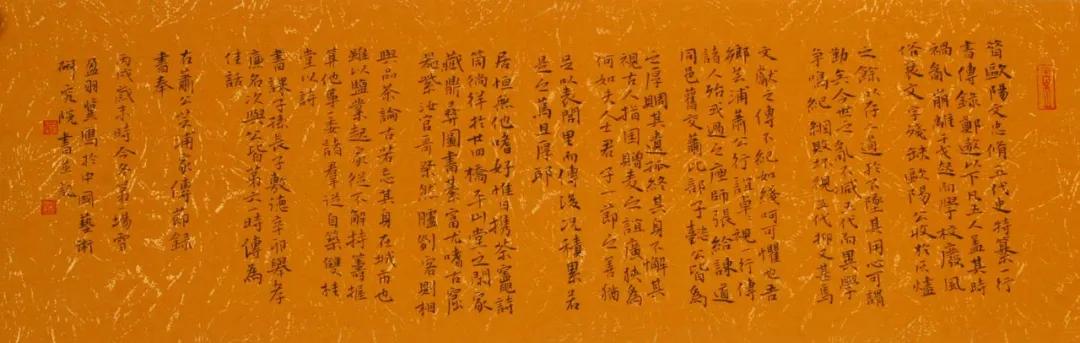 昔歐陽文忠脩五代史特纂一行
書傳錄鄭遨以下凡五人蓋其時
禍亂崩離干戈起而學校廢風
俗衰文字殘缺歐陽公收於灰燼
之餘以存公道於不墜其用心可謂
勤矣今世之亂不減五代而異學
爭鳴紀綱敗坏視五代抑又甚焉
文獻之傳不絕如綫呵可懼也吾
鄉芸浦蕭公行誼卓視一行傳
諸人殆或過之座師張給諫道
同邑舊交蕭比部子懿公皆為
之厚賙其遺孤終其身不懈其
視古人指囷贈麥之誼廣狹為
何如夫人士君子一節之善猶
足以表閭里而傳後況積累若
是之篤且厚耶
居恒無他嗜好惟日攜茶竈詩
筒徜徉於廿四橋平山堂之間家
藏鼎彝圖書綦富尤嗜古窯
瓷柴汝官哥粲然臚列客則相
與品茶論古若忘其身在城市也
雖以鹽業起家從不解持籌握
算他事一委諸羣從自築雙桂
堂以詩
書課子孫長子敷德辛卯舉孝
廉名次與公皆第六一時傳為
佳話
右蕭公芸浦家傳節錄
書奉
丙戌歲
盈羽冀儛於中國藝術
研究院